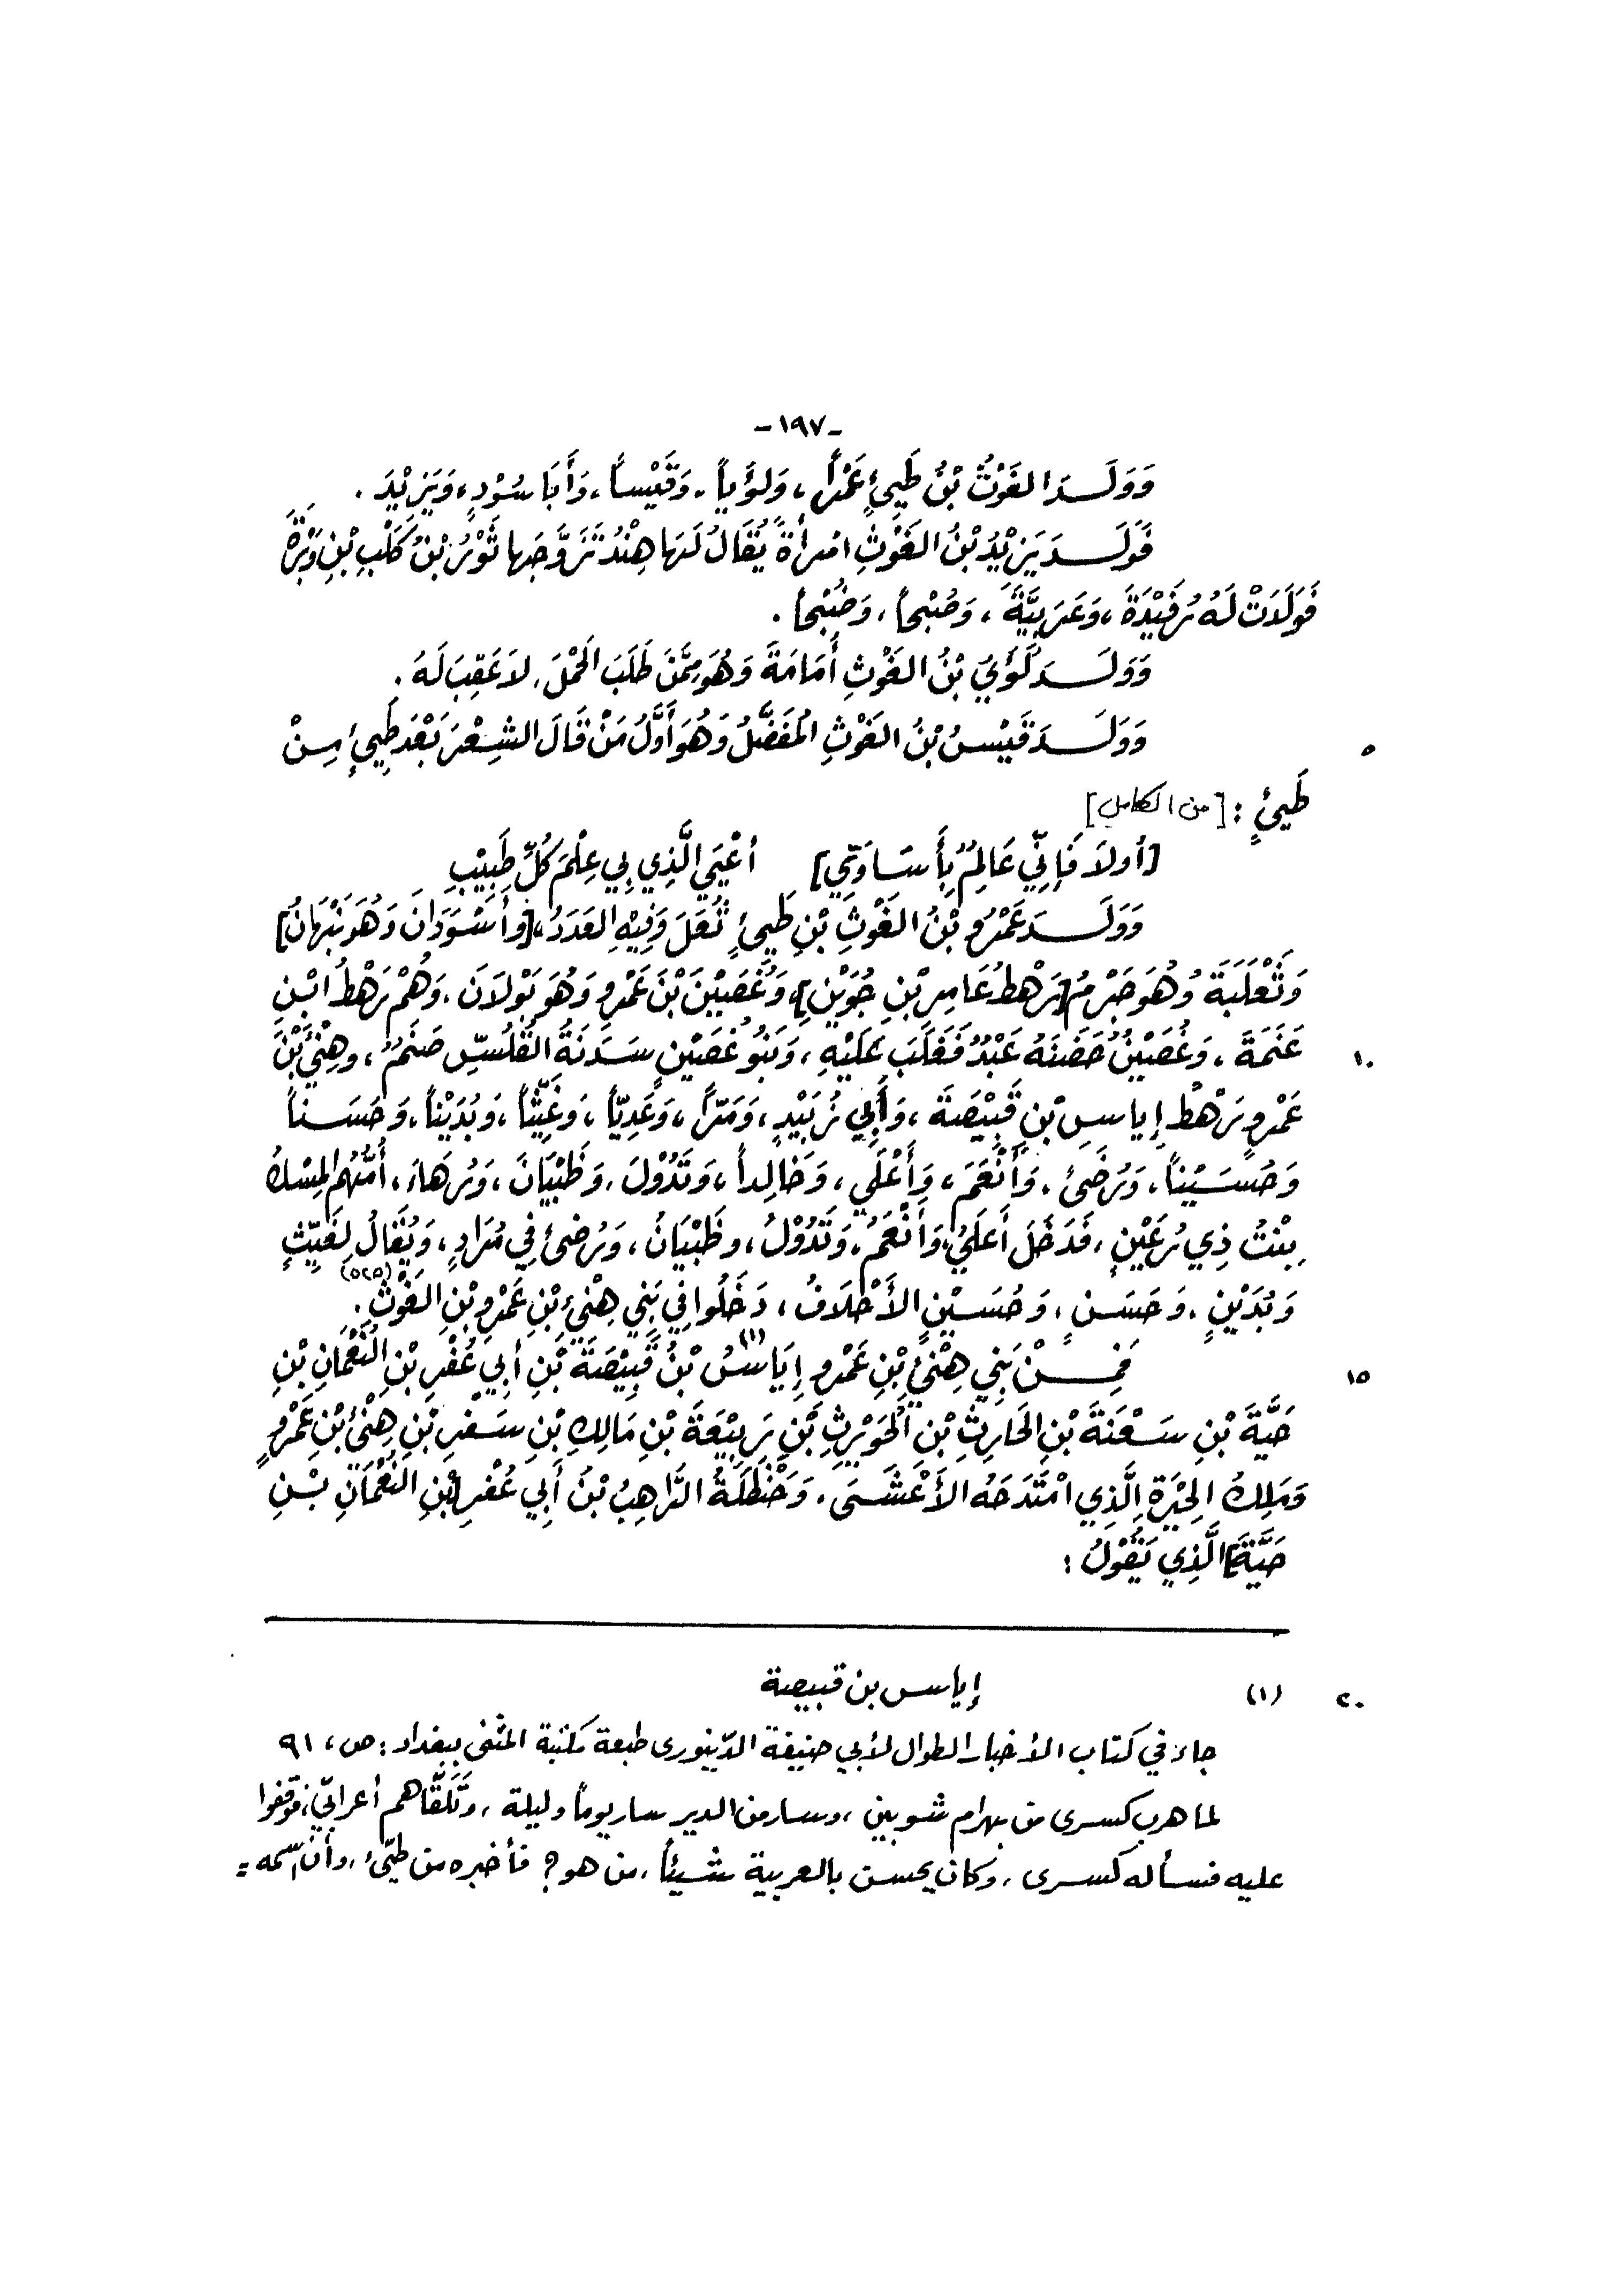 -١٩٧-
وَوَلَدَ الغَوْثُ بْنُ طَيِّئٍ عَمْراً، وَلُؤَيّاً، وَقَيْساً، وَأَبَا سُوْدٍ، وَيَزِيْدَ.
فَوَلَدَ يَزِيْدُ بْنُ الغَوْثِ امْرأَةً يُقَالُ لَهَا هِنْدُ تَزَوَّجَها ثَوْرُ بْنُ كَلْبِ بْنِ وَبْرَةَ
فَوَلَدَتْ لَهُ رُفَيْدَةَ، وَعَرَبِيَّةَ، وَصُبْحاً، وَضُبْحاً.
وَوَلَدَ لُؤَيُّ بْنُ الغَوْثِ أُمَامَةَ وَهُوَ مِمَّنْ طَلَبَ الحَمْلَ، لاَ عَقِبَ لَهُ.
وَوَلَدَ قَيْسُ بْنُ الغَوْثِ المُفَضَّلُ وَهُوَ أَوَّلُ مَنْ قَالَ الشِّعْرَ بَعْدَ طَيِّئٍ مِنْ ٥
طَيِّئٍ: [من الكامل]
[أولاَ فَإِنِّي عَالِمٌ بِأَسَاوَتِي] أَعْيَى الَّذِي بِي عِلْمَ كُلِّ طَبِيْبِ
وَوَلَدَ عَمْرُو بْنُ الغَوْثِ بْنِ طَيِّئٍ ثُعَلَ وَفِيْهِ العَدَدُ، [وأَسْوَدَانَ وَهُوَ نَبْهَانُ]
وَثَعْلَبَةَ وَهُوَ جَرْمُ [رَهْطُ عَامِرِ بْنِ جُوَيْنٍ] وَغُصَيْنَ بْنَ عَمْرٍو وَهُوَ بَوْلاَنَ، وَهُمْ رَهْطُ ابْنِ
عَنَمَةَ، وَغُصَيْنُ حَضَنَهُ عَبْدٌ فَغَلَبَ عَلَيْهِ، وَبَنُو غُصَيْنٍ سَدَنَةُ الفُلُسِّ صَنَمٌ، وهِنْئَ بْنَ ١٠
عَمْرٍو رَهْطُ إِياسِ بْنِ قَبِيْصَةَ، وَأَبِي زُبَيْدٍ، وَمَرّاً، وَعَدِيّاً، وَغَيِّثاً، وَبُدَيْناً، وَحَسَناً
وَحُسَيْناً، وَرُضَىً، وَأَنْعَمَ، وَأَعْلَى، وَخَالِداً، وَتَدُوْلَ، وَظَبْيَانَ، وَرُهَاءَ، أُمُّهُم المِسْكُ
بِنْتُ ذِي رُعَيْنٍ، فَدَخَلَ أَعْلَى، وَأَنْعَمُ، وَتَدُوْلُ، وظَبْيَانُ، وَرُضىً فِي مُرَادٍ، وَيُقَالُ لِغَيِّثٍ
وَبُدَيْنٍ، وَحَسَنٍ، وَحُسَيْنٍ الأَحْلاَفُ، دَخَلُوا فِي بَنِي هِنْيءِ بْنِ عَمْرِو بْنِ الغَوْثِ. (٥٢٥)
فَمِنْ بَنِي هِنْيءِ بْنِ عَمْرٍو إِيَاسُ (١) بْنُ قَبِيْصَةَ بْنِ أَبِي عُفْرِ بْنِ النُّعْمَانِ بْنِ ١٥
حَيَّةَ بْنِ سَعْنَةَ بْنِ الحَارِثِ بْنِ الحُوَيْرِثِ بْنِ رَبِيْعَةَ بْنِ مَالِكِ بْنِ سَفْرِ بْنِ هِنْئِ بْنِ عَمْرٍو
وَمَلِكُ الحِيْرَةِ الَّذِي امْتَدَحَهُ الأَعْشَى، وَحَنْظَلَةُ الرَّاهِبُ بْنُ أَبِي عُفْرِ [بْنِ النُّعْمَانِ بْنِ
حَيَّةَ] الَّذِي يَقُوْلُ:
(١) إياس بن قبيصة ٢٠
جاء في كتاب الأخبار الطوال لأبي حنيفة الدّينوري طبعة مكتبة المثنى ببغداد: ص، ٩١
لما هرب كسرى من بهرام شوبين، وسار من الدير سار يوماً وليلة، وتَلَقّاهم أعرابيّ، فوقفوا
عليه فسأله كسرى، وكان يحسن بالعربية شيئاً، من هو؟ فأخبره من طيّئ، وأن اسمه =